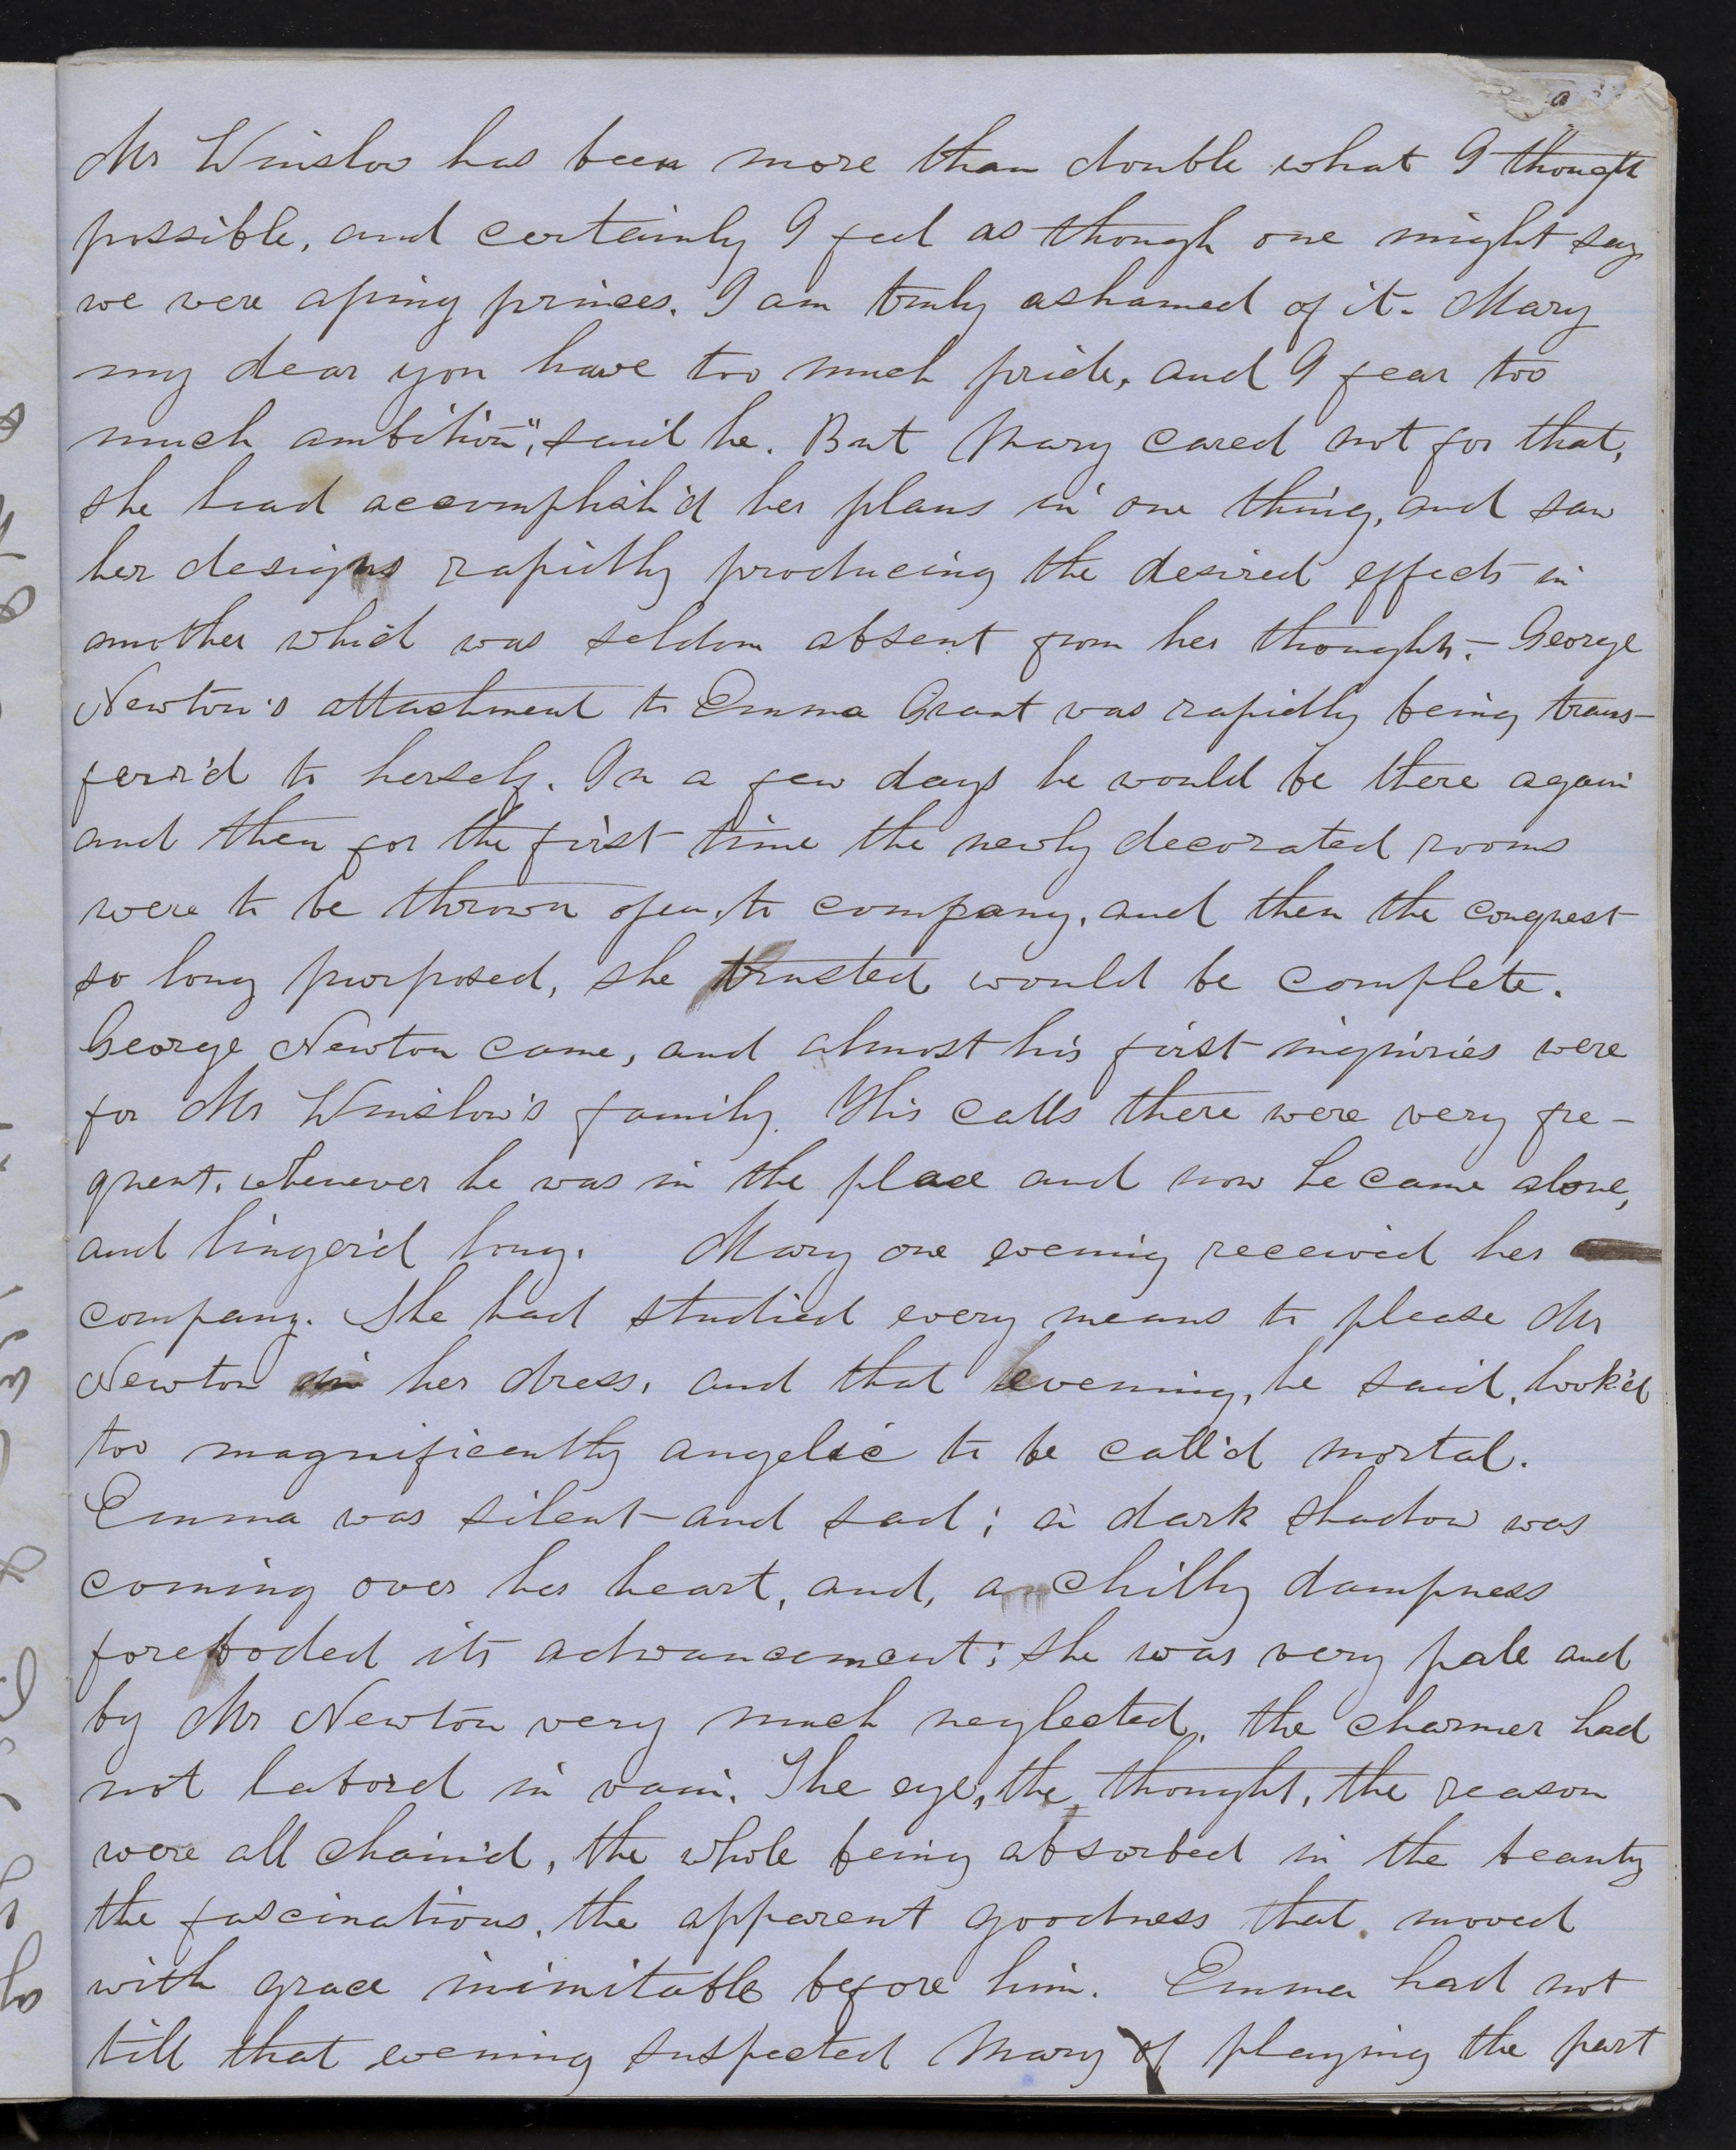 Mr Winslow has been more than double what I thought
possible, and certainly I feel as though one might say
we were aping princes. I am truly ashamed of it. Mary
my dear you have too much pride, and I fear too
much ambition", said he. But Mary cared not for that,
she had accomplish'd her plans in one thing, and saw
her designs rapidly producing the desired effects in
another which was seldom absent from her thoughts. – George
Newton's attachment to Emma Grant was rapidly being trans-
ferr'd to herself. In a few days he would be there again
and then for the first time the newly decorated rooms
were to be thrown open to company, and then the conquest
so long purposed, she trusted would be complete.
George Newton came, and almost his first inquiries were
for Mr Winslow's family. His calls there were very fre-
quent, whenever he was in the place and now he came alone,
and linger'd long. Mary one evening received her
company. She had studied every means to please Mr
Newton in her dress, and that evening, he said, look'd
too magnificently angelic to be call'd mortal.
Emma was silent and sad; a dark shadow was
coming over her heart, and, a chilly dampness
foreboded its advancement; she was very pale and
by Mr Newton very much neglected, the charmer had
not labord in vain. The eye, the thought, the reason
were all chain'd, the whole being absorbed in the beauty
the fascinations, the apparent goodness that moved
with grace inimitable before him. Emma had not
till that evening suspected Mary of playing the part